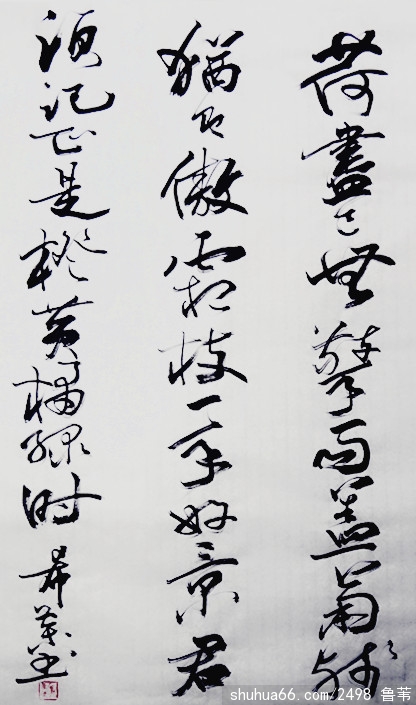 荷盡已無擎雨蓋菊殘
猶有傲霜枝一年好景君
須記正是橙黄橘綠时
希
shuhua66.com/2498 鲁苇